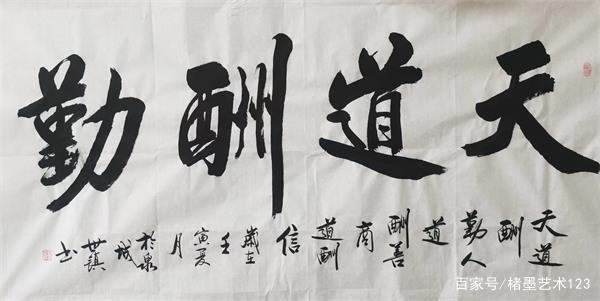 天道酬勤
天道
酬
勤人
道
酬善
商
道酬
信
歲在
壬
寅夏
月
於泉
城
世鎮
书
百家号/楮墨艺术123